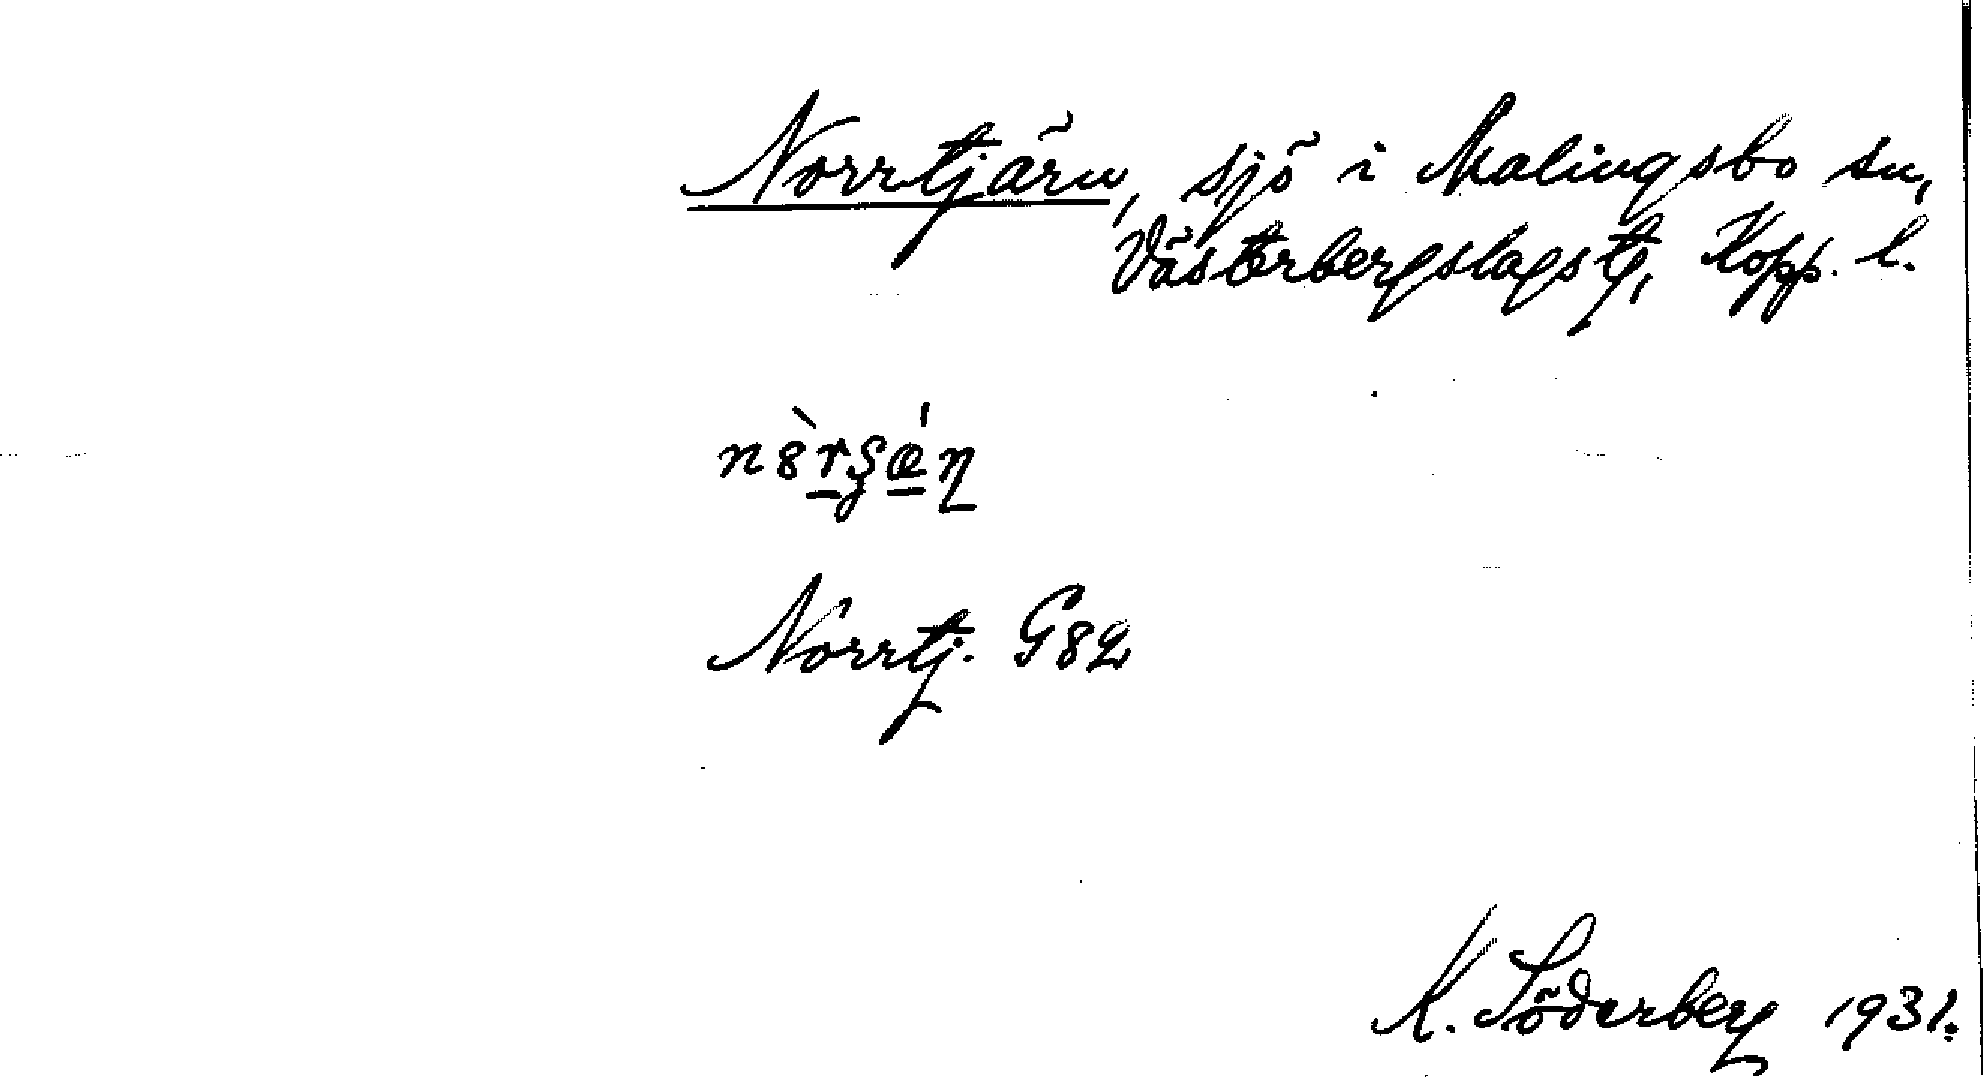 Norrtjärn, sjö i Malingsbo sn,
Västerbergslags tg, Kopp. l.
Norrtj. G82
K. Söderberg 1931.